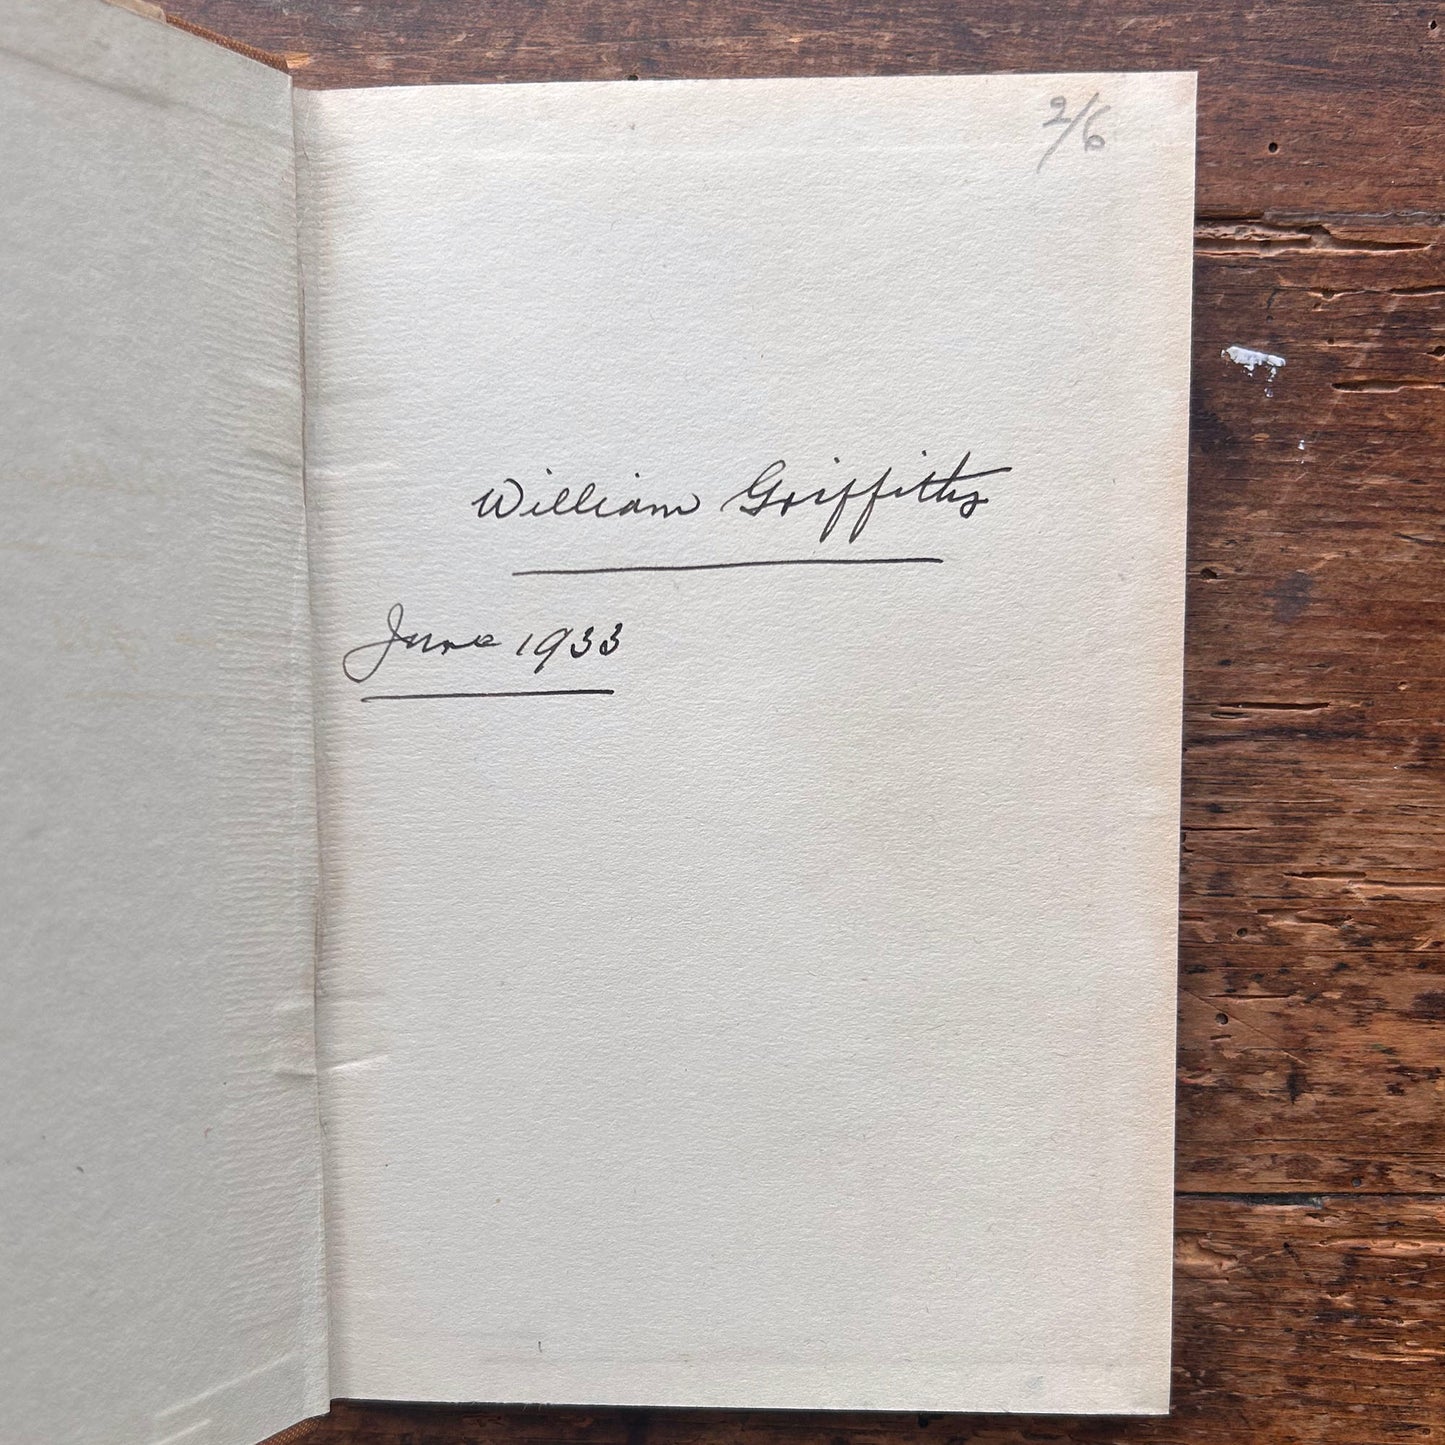 2/6
William Griffiths
June 1933